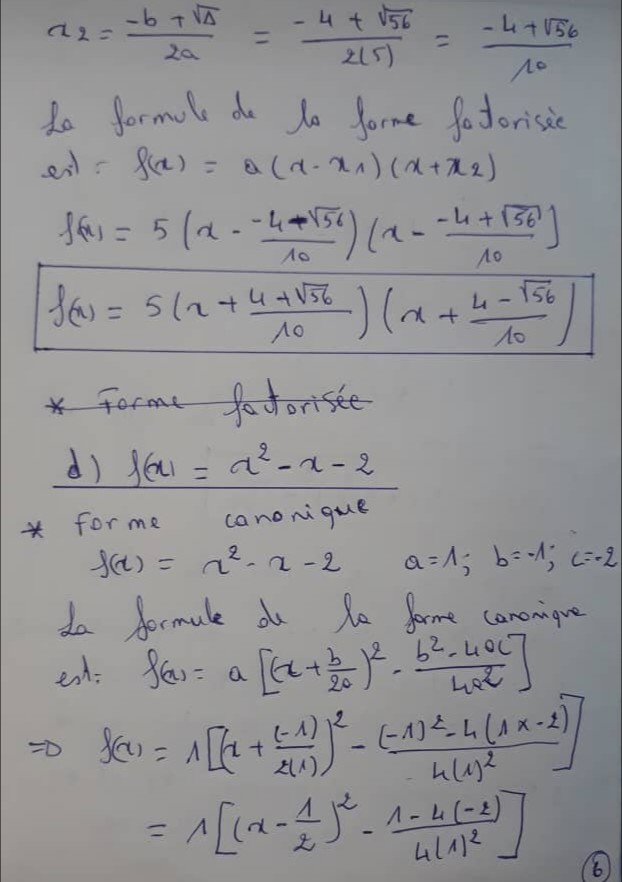 x2 = (-b + √Δ)/2a = (-4 + √56)/2(5) = (-4 + √56)/10
La formule de la forme factorisée
est: f(x) = a(x - x1)(x + x2)
f(x) = 5(x - (-4 - √56)/10)(x - (-4 + √56)/10]
f(x) = 5(x + (4 + √56)/10)(x + (4 - √56)/10)
* Forme factorisée
d) f(x) = x² - x - 2
* Forme canonique
f(x) = x² - x - 2 a=1; b=-1; c=-2
La formule de la forme canonique
est: f(x) = a[(x + b/2a)² - (b² - 4ac)/4a²]
=> f(x) = 1[(x + (-1)/2(1))² - ((-1)² - 4(1x-2))/4(1)²]
= 1[(x - 1/2)² - (1 - 4(-2))/4(1)²]
6